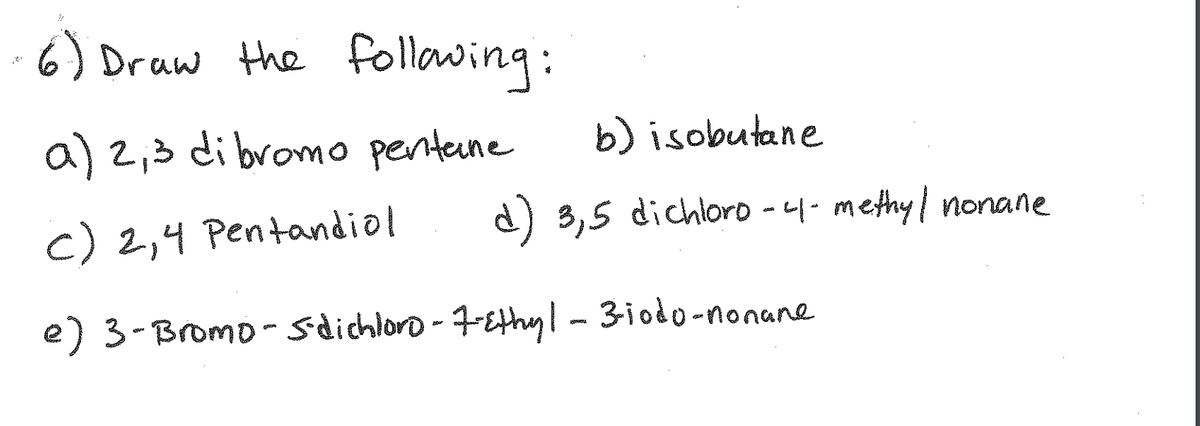 6) Draw the following:
a) 2,3 dibromo pentane b) isobutane
c) 2,4 Pentandiol d) 3,5 dichloro-4-methyl nonane
e) 3-Bromo-5-dichloro-7-Ethyl-3-iodo-nonane